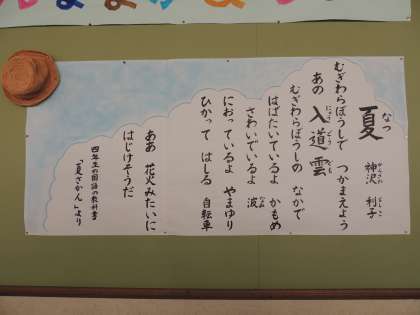 夏
神沢 利子
むぎわらぼうしで つかまえよう
あの 入道雲
むぎわらぼうしの なかで
はばたいているよ かもめ
さわいでいるよ 波
におっているよ やまゆり
ひかって はしる 自転車
ああ 花火みたいに
はじけそうだ
四年生の国語の教科書
「夏さかん」より